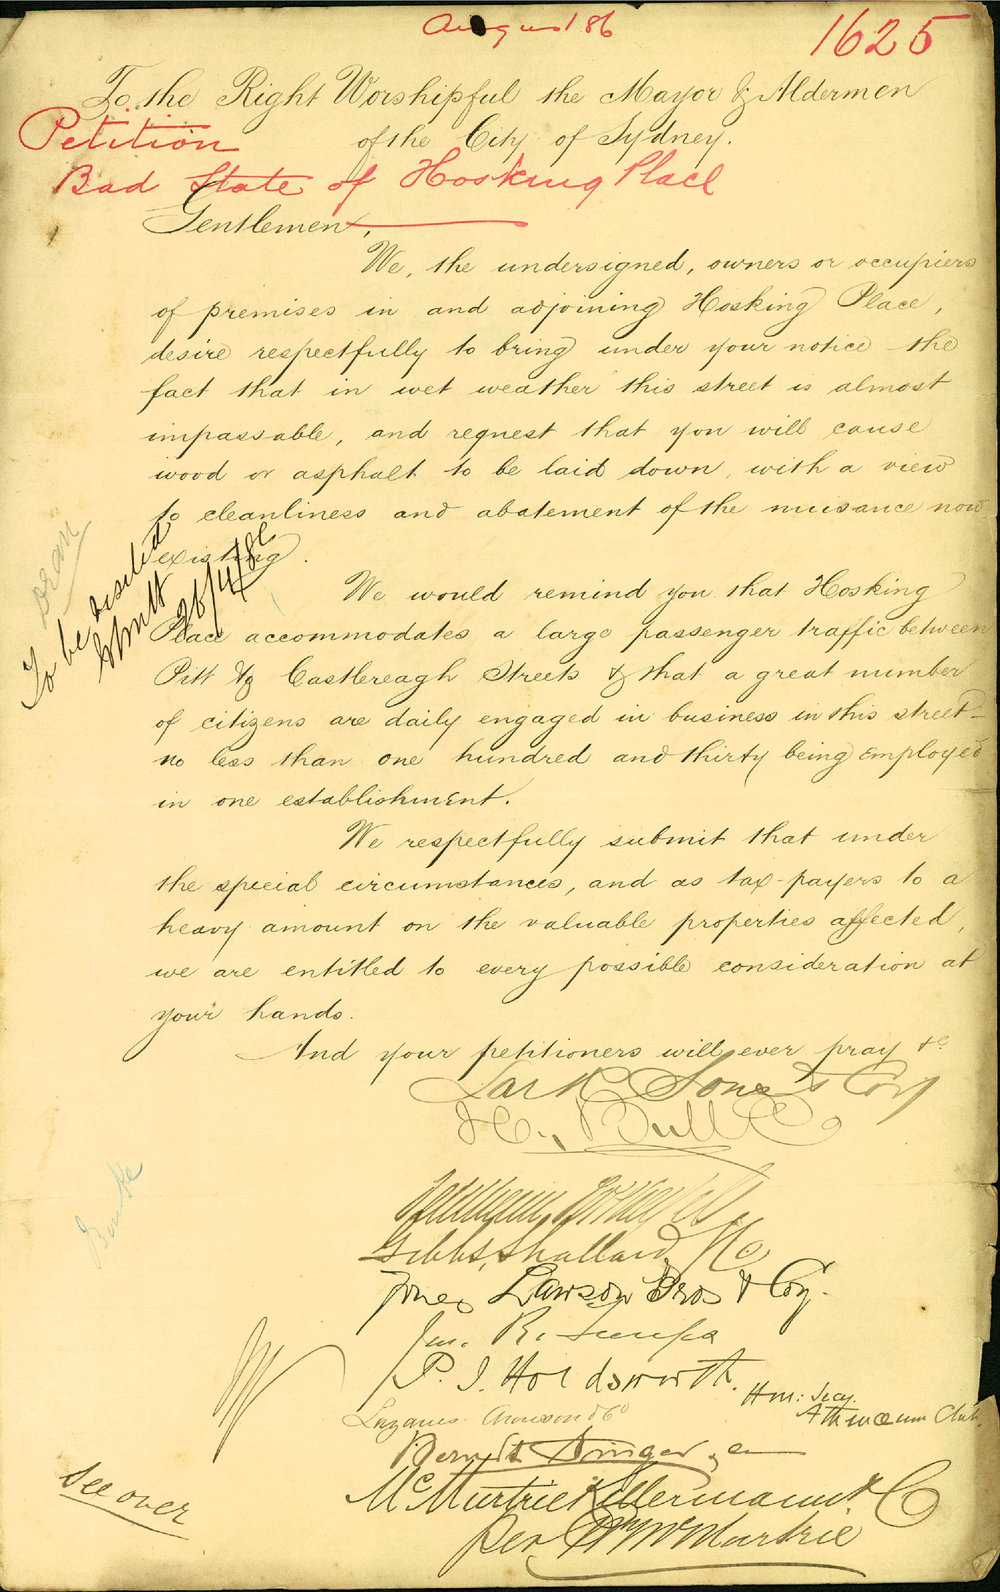 1625
To the Right Worshipful the Mayor & Aldermen
of the City of Sydney.
Petition
Bad State of Hosking Place
Gentlemen,
We, the undersigned, owners or occupiers
of premises in and adjoining Hosking Place,
desire respectfully to bring under your notice the
fact that in wet weather this street is almost
impassable, and request that you will cause
wood or asphalt to be laid down, with a view
to cleanliness and abatement of the nuisance now
existing.
To be visited
26/4/86
We would remind you that Hosking
Place accommodates a large passenger traffic between
Pitt & Castlereagh Streets & that a great number
of citizens are daily engaged in business in this street -
no less than one hundred and thirty being employed
in one establishment.
We respectfully submit that under
the special circumstances, and as tax-payers to a
heavy amount on the valuable properties affected,
we are entitled to every possible consideration at
your hands.
And your petitioners will ever pray &c
Lark Sons & Coy
H. Bull & Co
Gibbs, Shallard, & Co
Jones Lawson Bros & Coy.
P. J. Holdsworth. Hon: Secy.
Athenaeum Club.
Lazarus Aronson & Co
McMurtrie Kellermann & Co
per McMurtrie
See over